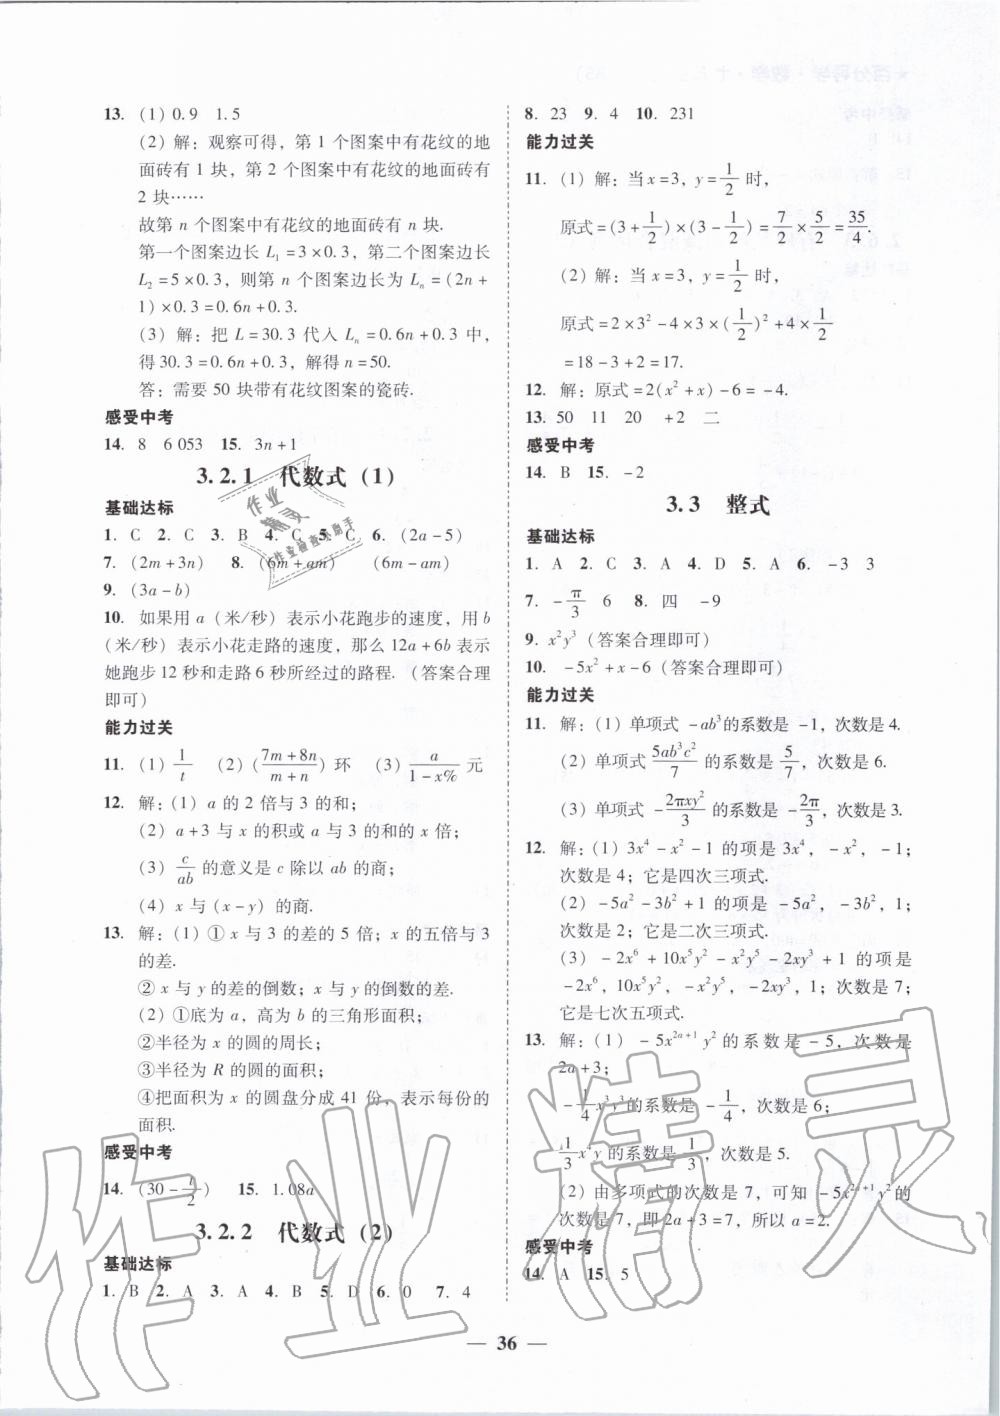 13. (1) 0.9  1.5
(2) 解：观察可得，第 1 个图案中有花纹的地
面砖有 1 块，第 2 个图案中有花纹的地面砖有
2 块……
故第 n 个图案中有花纹的地面砖有 n 块.
第一个图案边长 L₁=3×0.3，第二个图案边长
L₂=5×0.3，则第 n 个图案边长为 Lₙ=(2n+
1)×0.3=0.6n+0.3.
(3) 解：把 L=30.3 代入 Lₙ=0.6n+0.3 中，
得30.3=0.6n+0.3，解得 n=50.
答：需要 50 块带有花纹图案的瓷砖.
感受中考
14. 8  6 053  15. 3n+1
3.2.1 代数式（1）
基础达标
1. C  2. C  3. B  4. C  5. C  6. (2a-5)
7. (2m+3n)  8. (6m+am)  (6m-am)
9. (3a-b)
10. 如果用 a（米/秒）表示小花跑步的速度，用 b
（米/秒）表示小花走路的速度，那么 12a+6b 表示
她跑步 12 秒和走路 6 秒所经过的路程.（答案合理
即可）
能力过关
11. (1) 1/t  (2) ((7m+8n)/(m+n)) 环  (3) a/(1-x%) 元
12. 解：(1) a 的 2 倍与 3 的和；
(2) a+3 与 x 的积或 a 与 3 的和的 x 倍；
(3) c/ab 的意义是 c 除以 ab 的商；
(4) x 与 (x-y) 的商.
13. 解：(1) ① x 与 3 的差的 5 倍；x 的五倍与 3
的差.
② x 与 y 的差的倒数；x 与 y 的倒数的差.
(2) ①底为 a，高为 b 的三角形面积；
②半径为 x 的圆的周长；
③半径为 R 的圆的面积；
④把面积为 x 的圆盘分成 41 份，表示每份的
面积.
感受中考
14. (30-t/2)  15. 1.08a
3.2.2 代数式（2）
基础达标
1. B  2. A  3. A  4. B  5. D  6. 0  7. 4
8. 23  9. 4  10. 231
能力过关
11. (1) 解：当 x=3，y=1/2 时，
原式=(3+1/2)×(3-1/2)=7/2×5/2=35/4.
(2) 解：当 x=3，y=1/2 时，
原式=2×3²-4×3×(1/2)²+4×1/2
=18-3+2=17.
12. 解：原式=2(x²+x)-6=-4.
13. 50  11  20  +2  二
感受中考
14. B  15. -2
3.3 整式
基础达标
1. A  2. C  3. A  4. D  5. A  6. -3  3
7. -π/3  6  8. 四  -9
9. x²y³（答案合理即可）
10. -5x²+x-6（答案合理即可）
能力过关
11. 解：(1) 单项式 -ab³的系数是 -1，次数是 4.
(2) 单项式 5ab³c²/7 的系数是 5/7，次数是 6.
(3) 单项式 -2πxy²/3 的系数是 -2π/3，次数是 3.
12. 解：(1) 3x⁴-x²-1 的项是 3x⁴，-x²，-1；
次数是 4；它是四次三项式.
(2) -5a²-3b²+1 的项是 -5a²，-3b²，1；
次数是 2；它是二次三项式.
(3) -2x⁶+10x⁵y²-x²y⁵-2xy³+1 的项是
-2x⁶，10x⁵y²，-x²y⁵，-2xy³，1；次数是 7；
它是七次五项式.
13. 解：(1) -5x²ᵃ⁺¹y² 的系数是 -5，次数是
2a+3；
-1/4x³y³的系数是 -1/4，次数是 6；
1/3x⁴y 的系数是 1/3，次数是 5.
(2) 由多项式的次数是 7，可知 -5x²ᵃ⁺¹y² 的
次数是 7，即 2a+3=7，所以 a=2.
感受中考
14. A  15. 5
— 36 —
作业精灵
作业
精灵
作业检查小助手